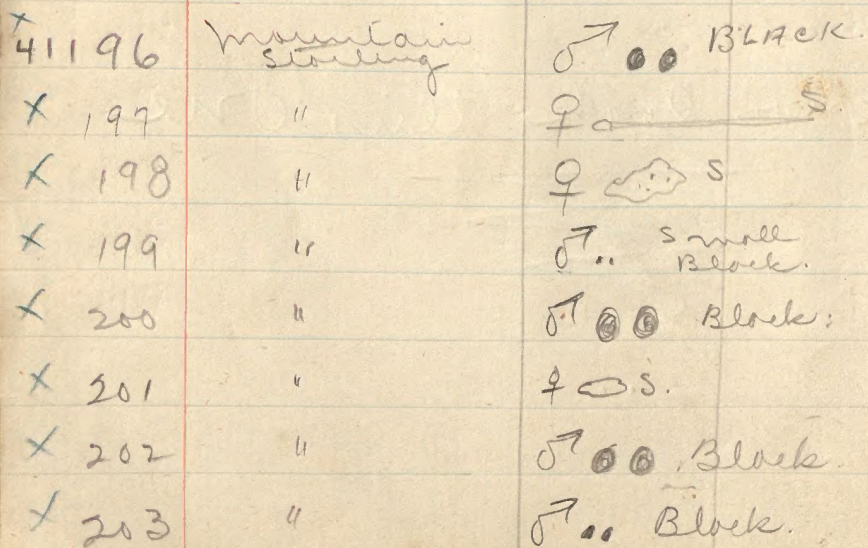 x 41196 Mountain Starling ♂ BLACK.
x 197 " ♀ S
x 198 " ♀ S
x 199 " ♂ Small Black.
x 200 " ♂ Black.
x 201 " ♀ S.
x 202 " ♂ Black.
x 203 " ♂ Black.